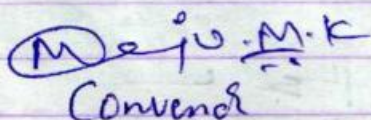 Meju.M.K
Convenor